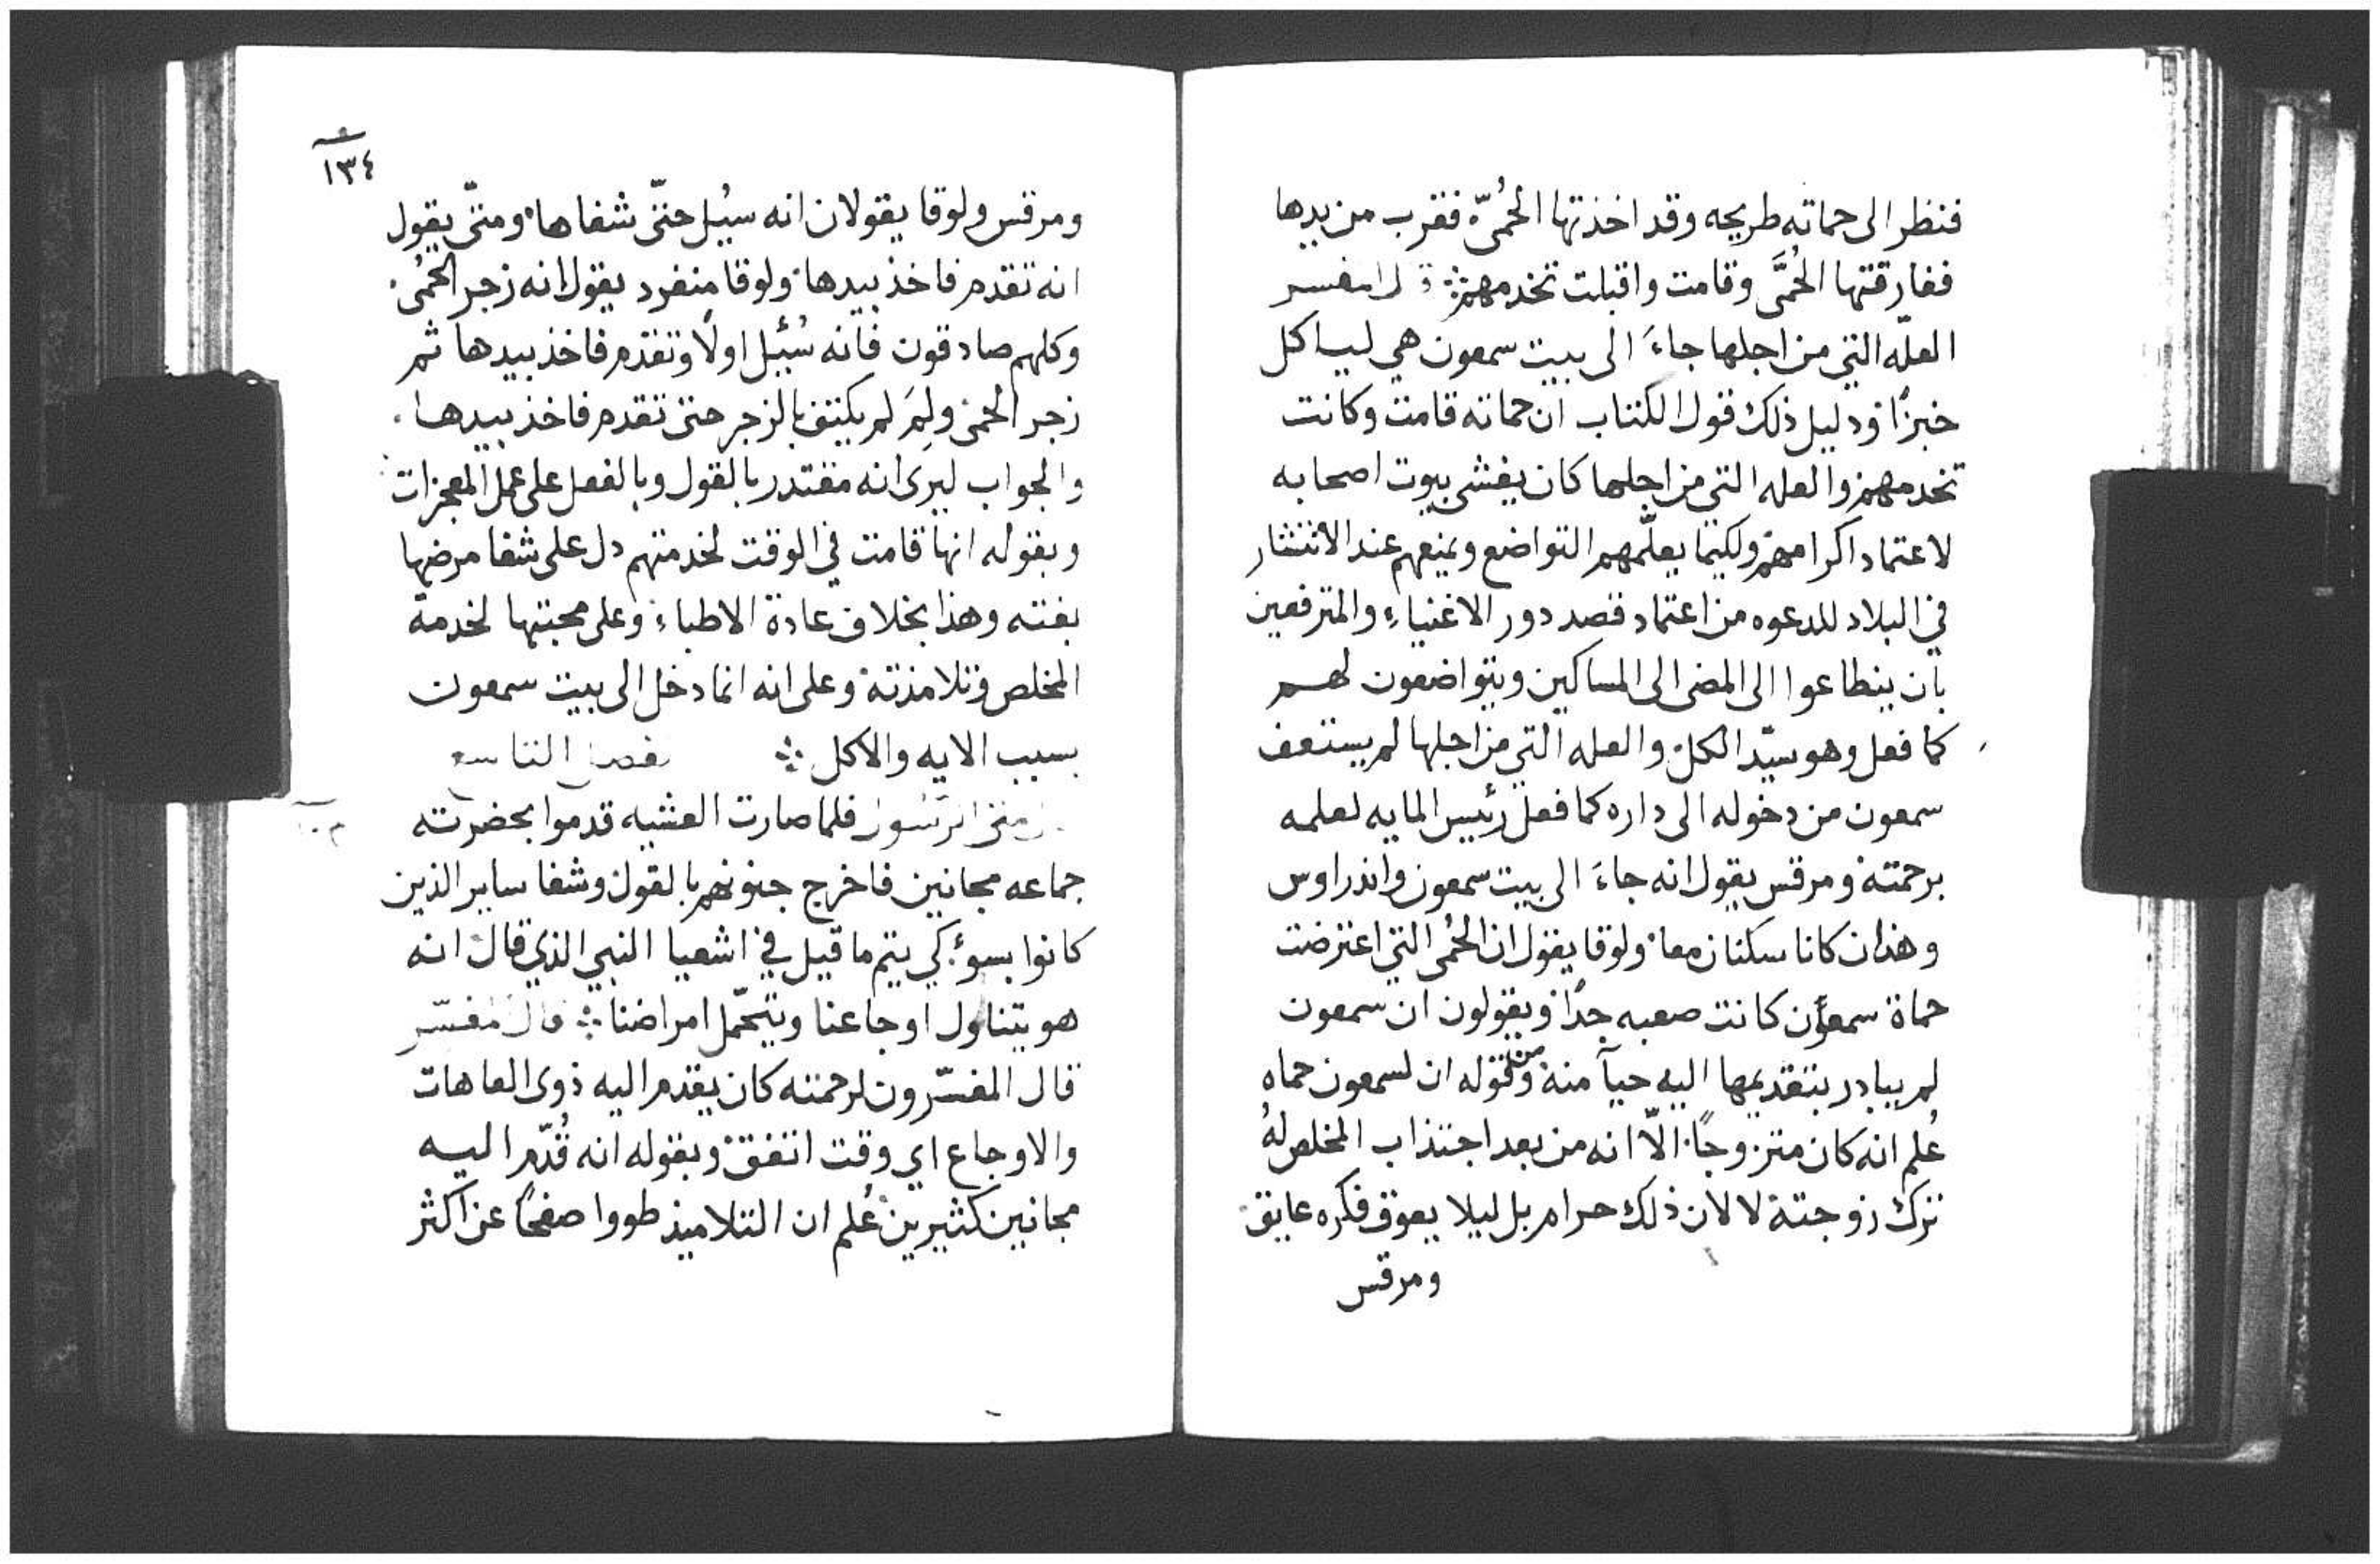 فنظر الى حماته طريحه وقد اخذتها الحُمىّ فقرب من يدها
ففارقتها الحُمَّى وقامت واقبلت تخدمهم ⁘ قال المفسر
العلّه التي من اجلها جاءَ الى بيت سمعون هي لياكل
خبزًا ودليل ذلك قول الكتاب ان حماته قامت وكانت
تخدمهم والعله التي من اجلها كان يغشى بيوت اصحابه
لاعتماد اكرامهم ولكيما يعلّمهم التواضع ويمنعهم عند الانتشار
في البلاد للدعوه من اعتماد قصد دور الاغنياءِ والمترفعين
بان يتطاعوا الى المضى الى المساكين ويتواضعون لهم
كما فعل وهو سيّد الكل والعله التي من اجلها لم يستعف
سمعون من دخوله الى داره كما فعل رئيس المايه لعلمه
برحمته ومرقس يقول انه جاءَ الى بيت سمعون واندراوس
وهذان كانا سكنان معا ولوقا يقول ان الحُمى التي اعترضت
حماة سمعون كانت صعبه جدًا ويقولون ان سمعون
لم يبادر بتقديمها اليه حيآ منه ومن قوله ان لسمعون حماه
عُلم انه كان متزوجًا الّا انه من بعد اجتذاب المخلص لهُ
ترك زوجته لا لان ذلك حرام بل ليلا يعوق فكره عايق
ومرقس
١٣٤
ومرقس ولوقا يقولان انه سيُل حتّى شفاها ومتّى يقول
انه تقدم فاخذ بيدها ولوقا منفرد يقول انه زجر الحُمى
وكلهم صادقون فانه سُئيل اولًا وتقدم فاخذ بيدها ثم
زجر الحمى ولِمَ لم يكتف بالزجر حتى تقدم فاخذ بيدها
والجواب ليرى انه مقتدر بالقول وبالفعل على عمل المعجزات
وبقوله انها قامت في الوقت لخدمتهم دل على شفا مرضها
بغته وهذا بخلاف عادة الاطباءِ وعلى محبتها لخدمة
المخلص وتلامذته وعلى انه انما دخل الى بيت سمعون
بسبب الايه والاكل ⁘ فصل التاسع
متى الرسول فلما صارت العشيه قدموا بحضرته
جماعه مجانين فاخرج جنونهم بالقول وشفا ساير الذين
كانوا بسوءٍ كي يتم ما قيل في اشعيا النبي الذي قال انه
هو يتناول اوجاعنا ويتحّمل امراضنا ⁘ قال المفسّر
قال المفسّرون لرحمته كان يقدم اليه ذوى العاهات
والاوجاع اي وقت اتفق وبقوله انه قُدّم اليه
مجانين كثيرين عُلم ان التلاميذ طووا صفحًا عن اكثر